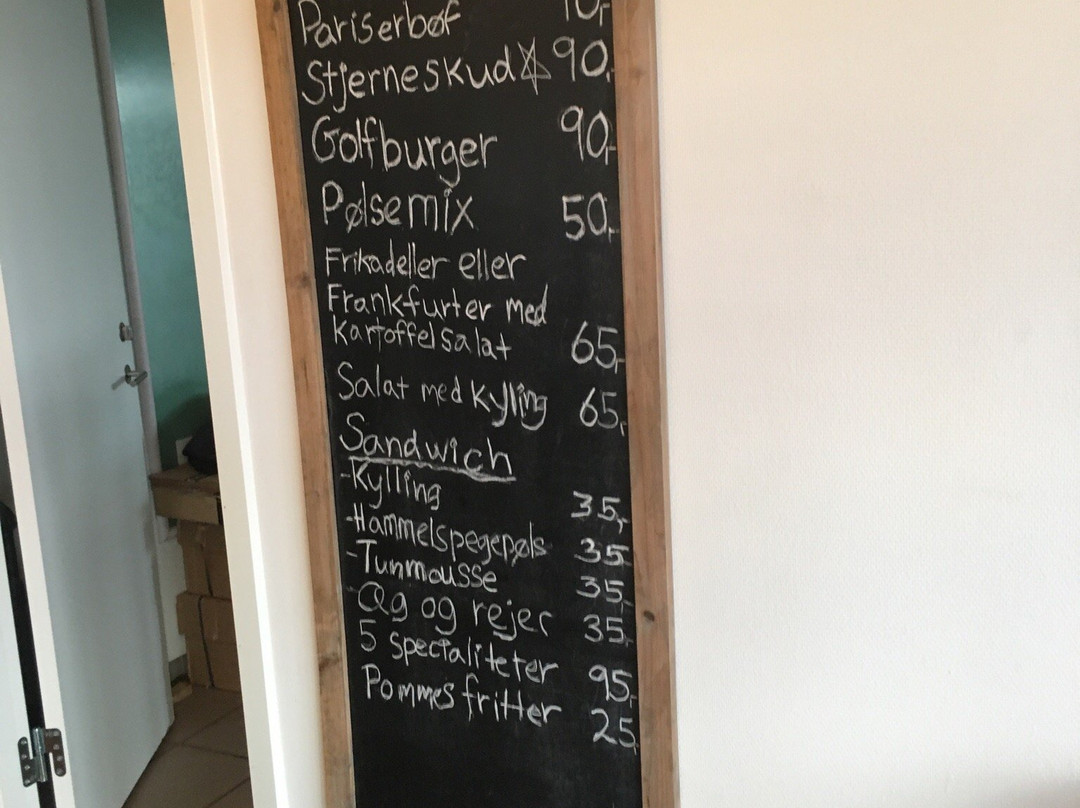 Pariserbøf
Stjerneskud 90,-
Golfburger 90,-
Pølsemix 50,-
Frikadeller eller
Frankfurter med
Kartoffelsalat 65,-
Salat med Kylling 65,-
Sandwich
-Kylling 35,-
-Hammelspegepøls 35
-Tunmousse 35,-
-Æg og rejer 35,-
5 specialiteter 95,-
Pommes fritter 25,